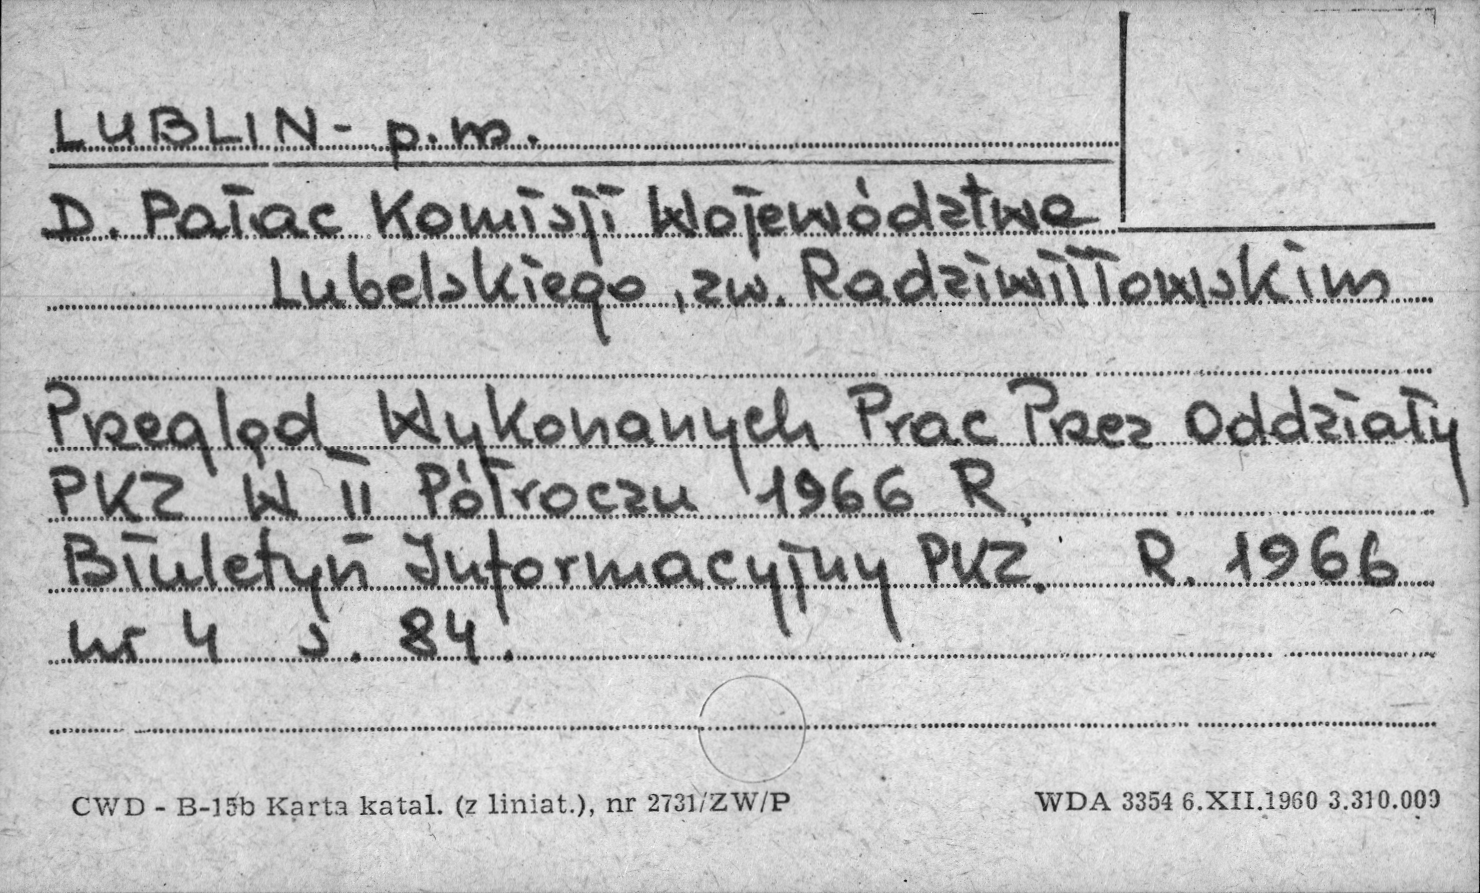 LUBLIN - p.m.
D. Pałac Komisji Województwa
Lubelskiego, zw. Radziwiłłowskim
Przegląd Wykonanych Prac Przez Oddziały
PKZ W II Półroczu 1966 R.
Biuletyn Informacyjny PKZ. R. 1966
nr 4 s. 84.
CWD - B-15b Karta katal. (z liniat.), nr 2731/ZW/P
WDA 3354 6.XII.1960 3.310.000